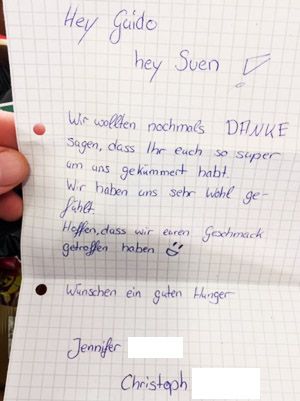 Hey Guido
hey Sven !
Wir wollten nochmals DANKE
sagen, dass Ihr euch so super
um uns gekümmert habt.
Wir haben uns sehr wohl ge-
fühlt.
Hoffen, dass wir euren Geschmack
getroffen haben
Wünschen ein guten Hunger
Jennifer
Christoph